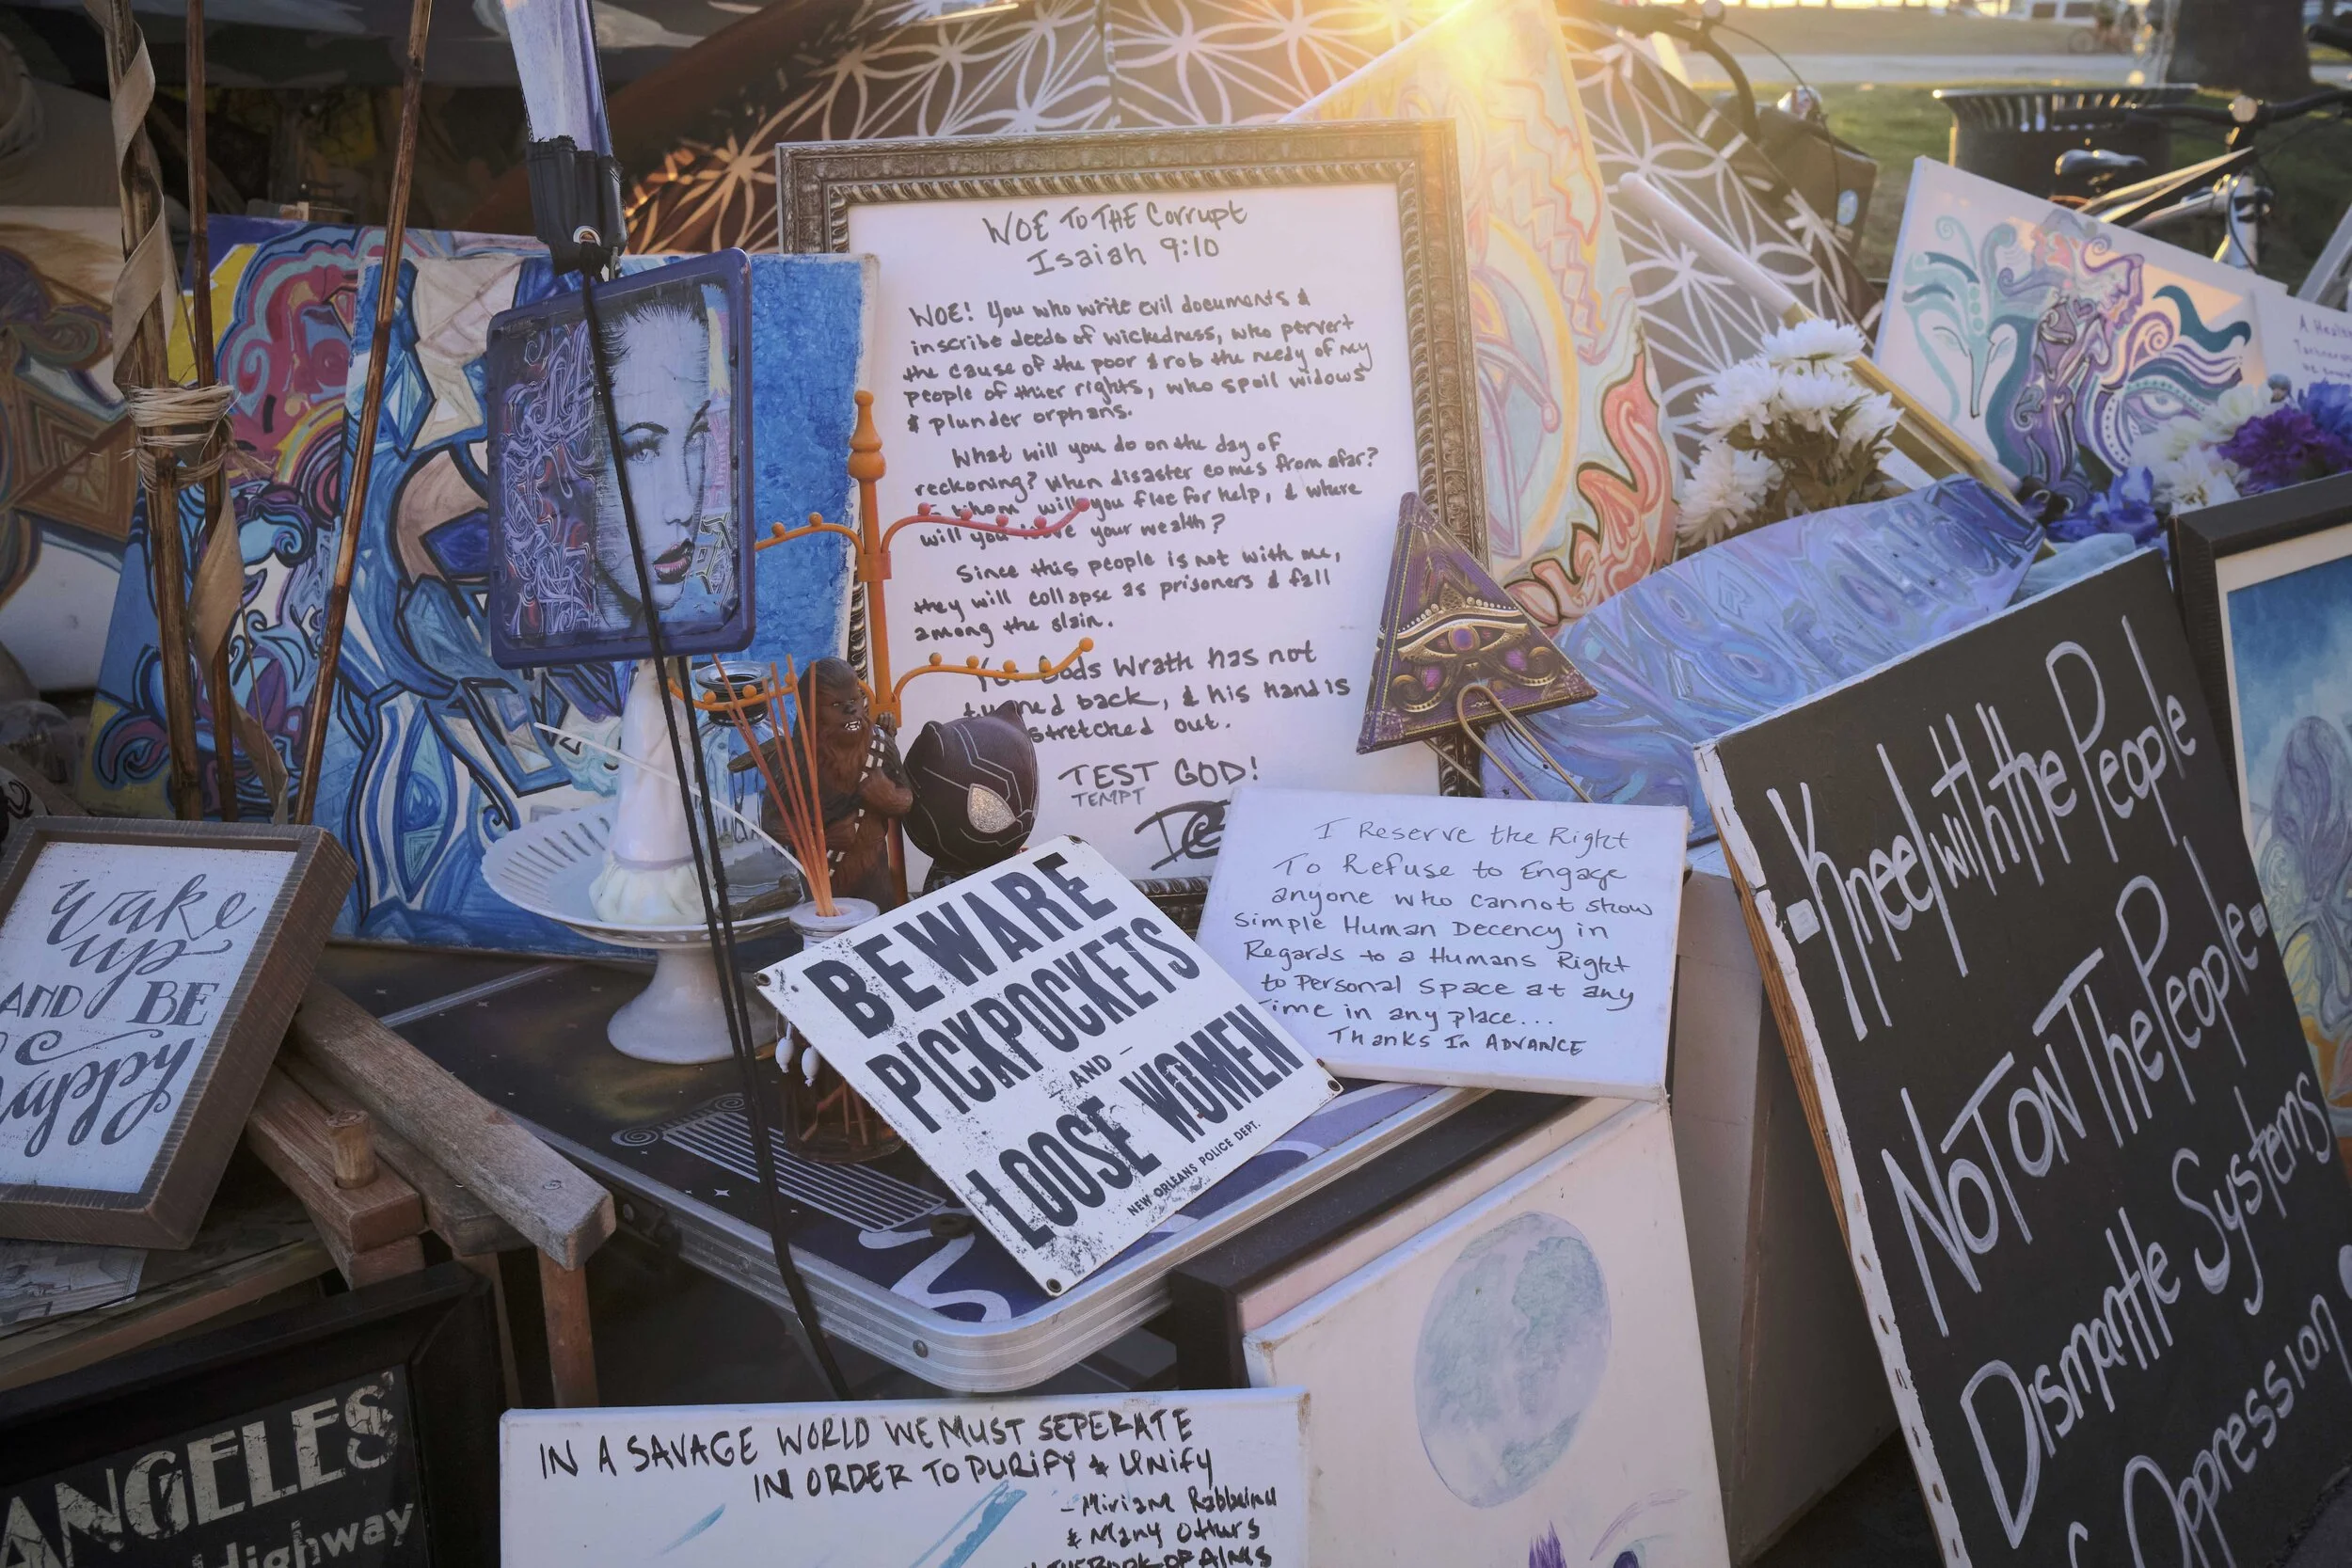 WOE TO THE Corrupt
Isaiah 9:10
WOE! You who write evil documents &
inscribe deeds of wickedness, who pervert
the cause of the poor & rob the needy of my
people of thier rights, who spoil widows
& plunder orphans.
What will you do on the day of
reckoning? When disaster comes from afar?
whom will you flee for help, & where
will you your wealth?
Since this people is not with me,
they will collapse as prisoners & fall
among the slain.
Gods Wrath has not
back, & his hand is
stretched out.
TEST GOD!
TEMPT
I Reserve the Right
To Refuse to Engage
anyone who cannot show
Simple Human Decency in
Regards to a Humans Right
to Personal Space at any
Time in any place...
Thanks In ADVANCE
BEWARE
PICKPOCKETS
AND
LOOSE WOMEN
NEW ORLEANS POLICE DEPT.
Wake
up
AND BE
Happy
Kneel with the People
NOT ON The People.
Dismantle Systems
Oppression
ANGELES'
Highway
IN A SAVAGE WORLD WE MUST SEPERATE
IN ORDER TO PURIFY & UNIFY
- Miriam Rabbeinu
& Many Others
A Healt